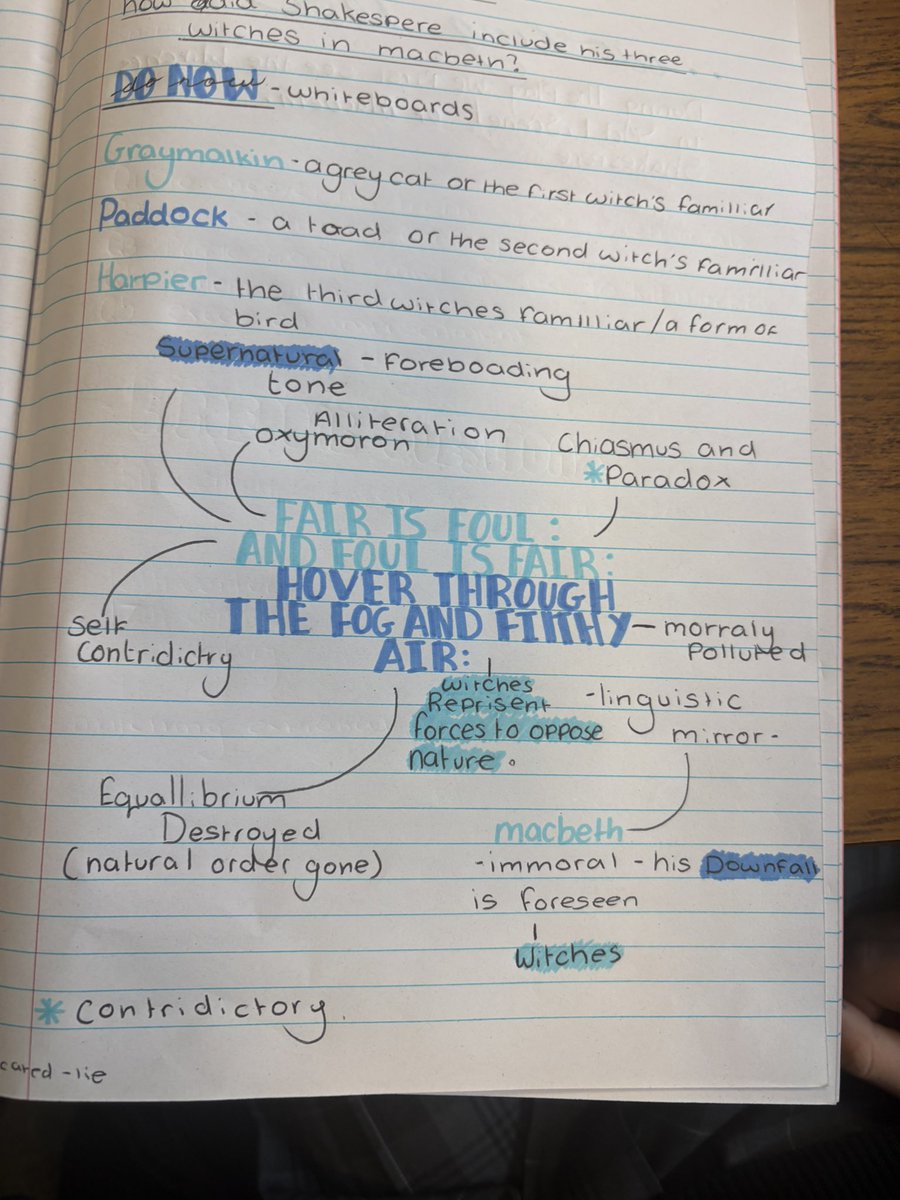 how did Shakespere include his three
witches in macbeth?
DO NOW - whiteboards
Graymalkin - a grey cat or the first witch's familiar
Paddock - a toad or the second witch's familiar
Harpier - the third witches familiar/a form of
bird
Supernatural - Foreboading
tone
Alliteration
oxymoron
Chiasmus and
*Paradox
FAIR IS FOUL :
AND FOUL IS FAIR:
HOVER THROUGH
THE FOG AND FILTHY - morraly
Polluted
AIR:
Self
Contridictry
witches
Reprisent
forces to oppose
nature.
-linguistic
mirror-
Equallibrium
Destroyed
(natural order gone)
macbeth
-immoral - his Downfall
is foreseen
Witches
* Contridictory.
cared - lie